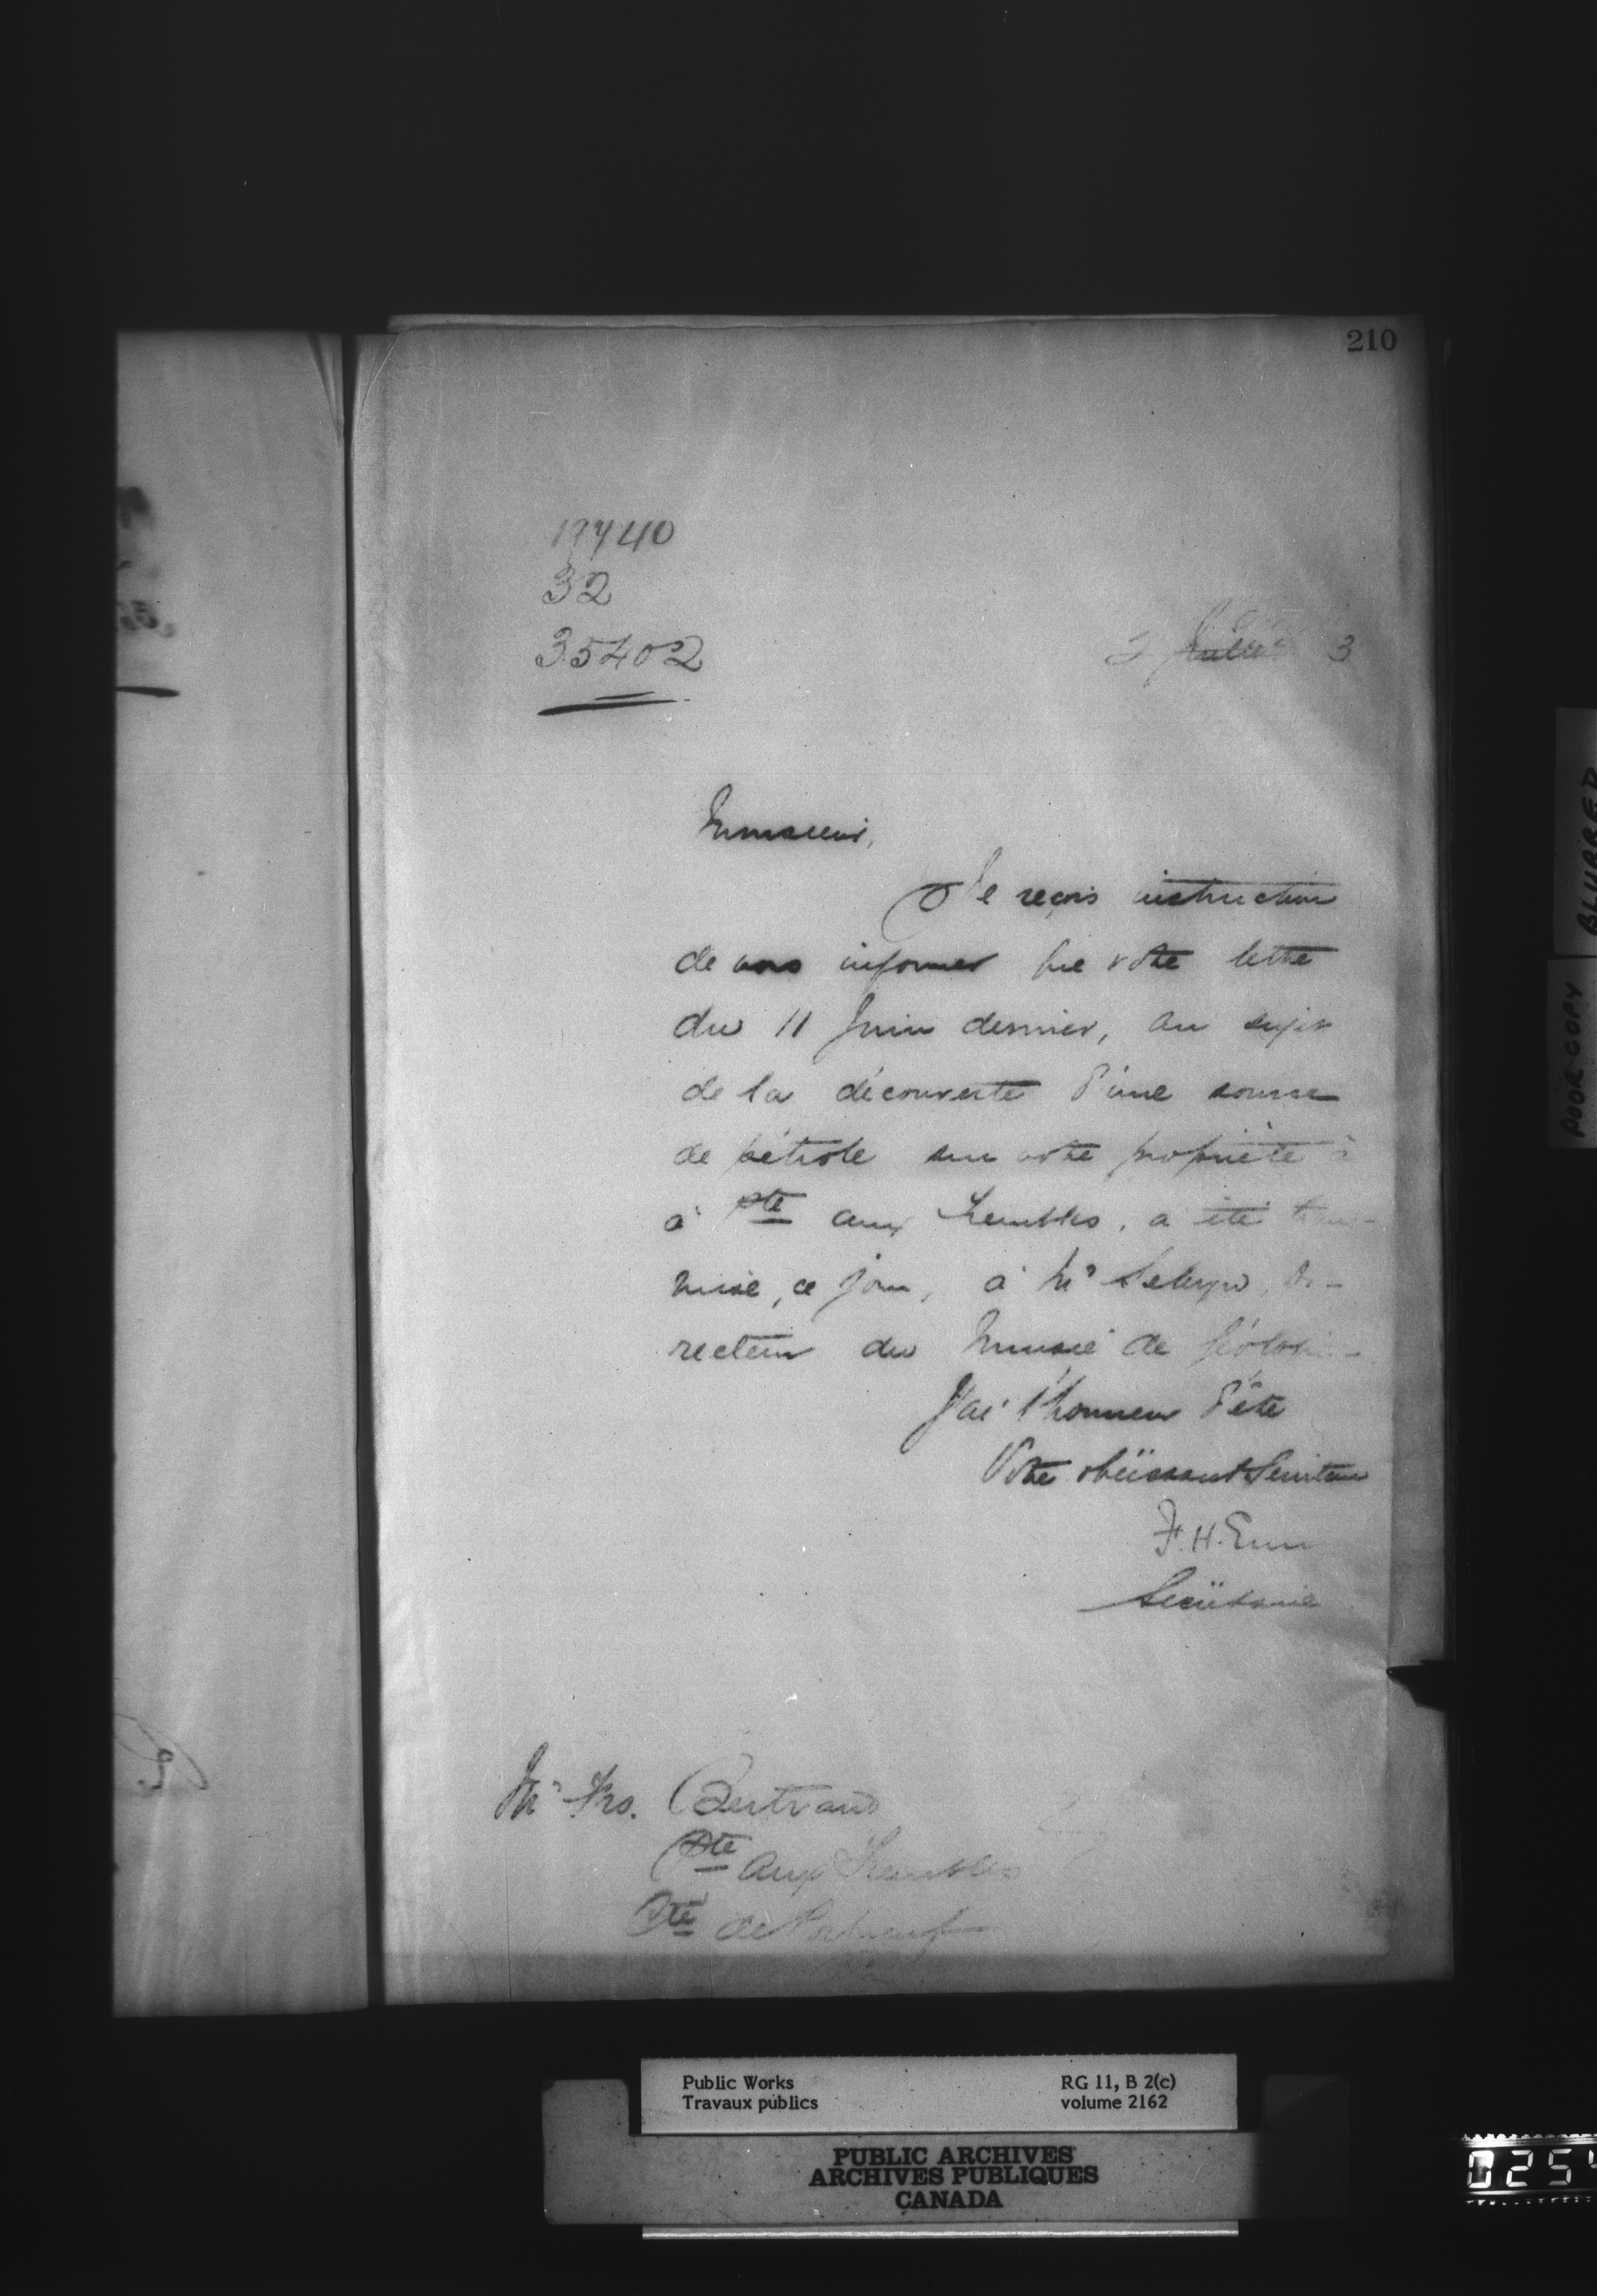 210
19740
32
35402
2 Juillet 3
Monsieur,
Je reçois instruction
de vous informer que votre lettre
du 11 Juin dernier, au sujet
de la découverte d'une source
de pétrole sur votre propriété à
à Pte aux Trembles, a été trans-
mise, ce jour, à Mr Selwyn, Di-
recteur du Musée de Géologie
J'ai l'honneur d'être
Votre obéissant Serviteur
F. H. Ennis
Secrétaire
Mr Frs. Bertrand
Pte aux Trembles
Cté de Portneuf
Public Works
Travaux publics
RG 11, B 2(c)
volume 2162
PUBLIC ARCHIVES
ARCHIVES PUBLIQUES
CANADA
POOR COPY
BLURRED
0254